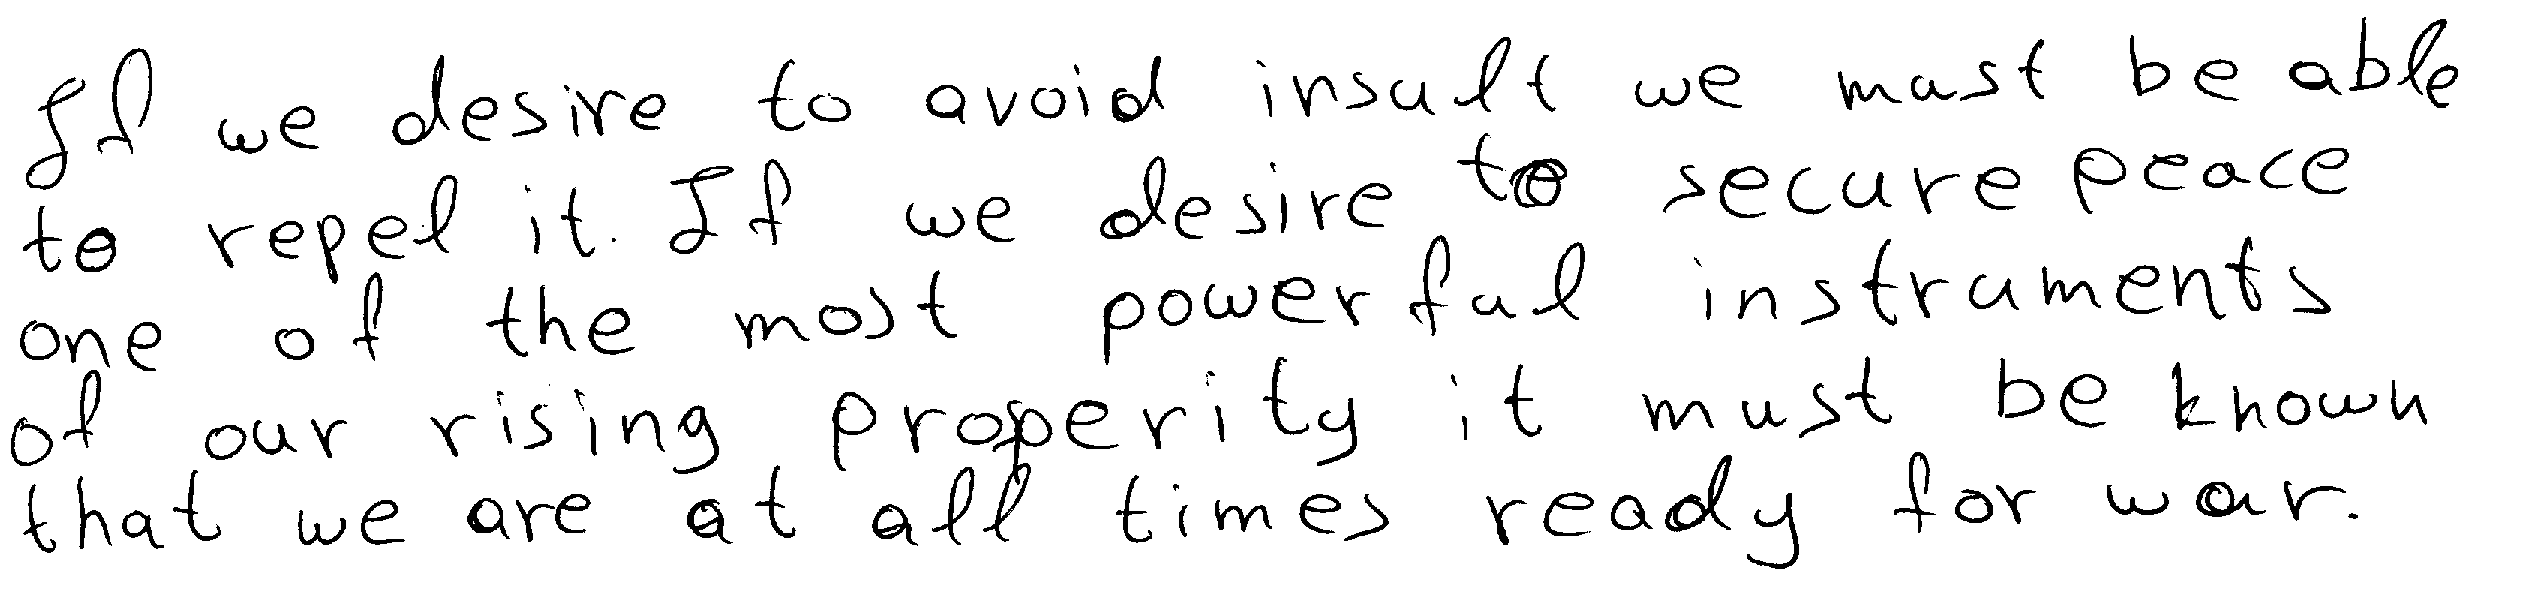 If we desire to avoid insult we must be able
to repel it. If we desire to secure peace
one of the most powerful instruments
of our rising properity it must be known
that we are at all times ready for war.